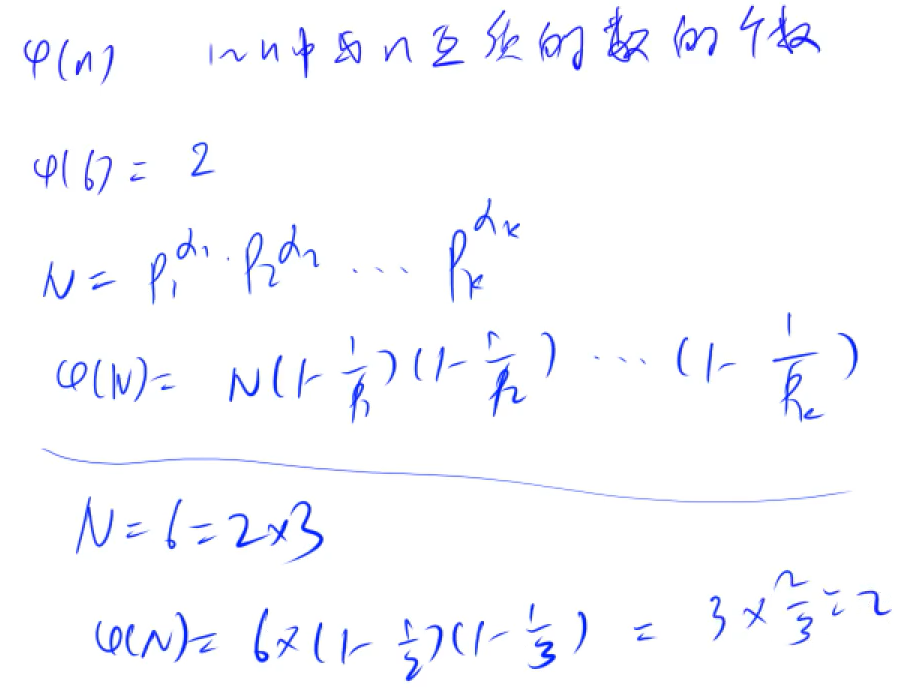 φ(n) 1~n中与n互质的数的个数
φ(6) = 2
N = p₁^α₁ · p₂^α₂ ... pₖ^αₖ
φ(N) = N(1-1/p₁)(1-1/p₂) ... (1-1/pₖ)
N=6=2×3
φ(N) = 6×(1-1/2)(1-1/3) = 3×2/3=2